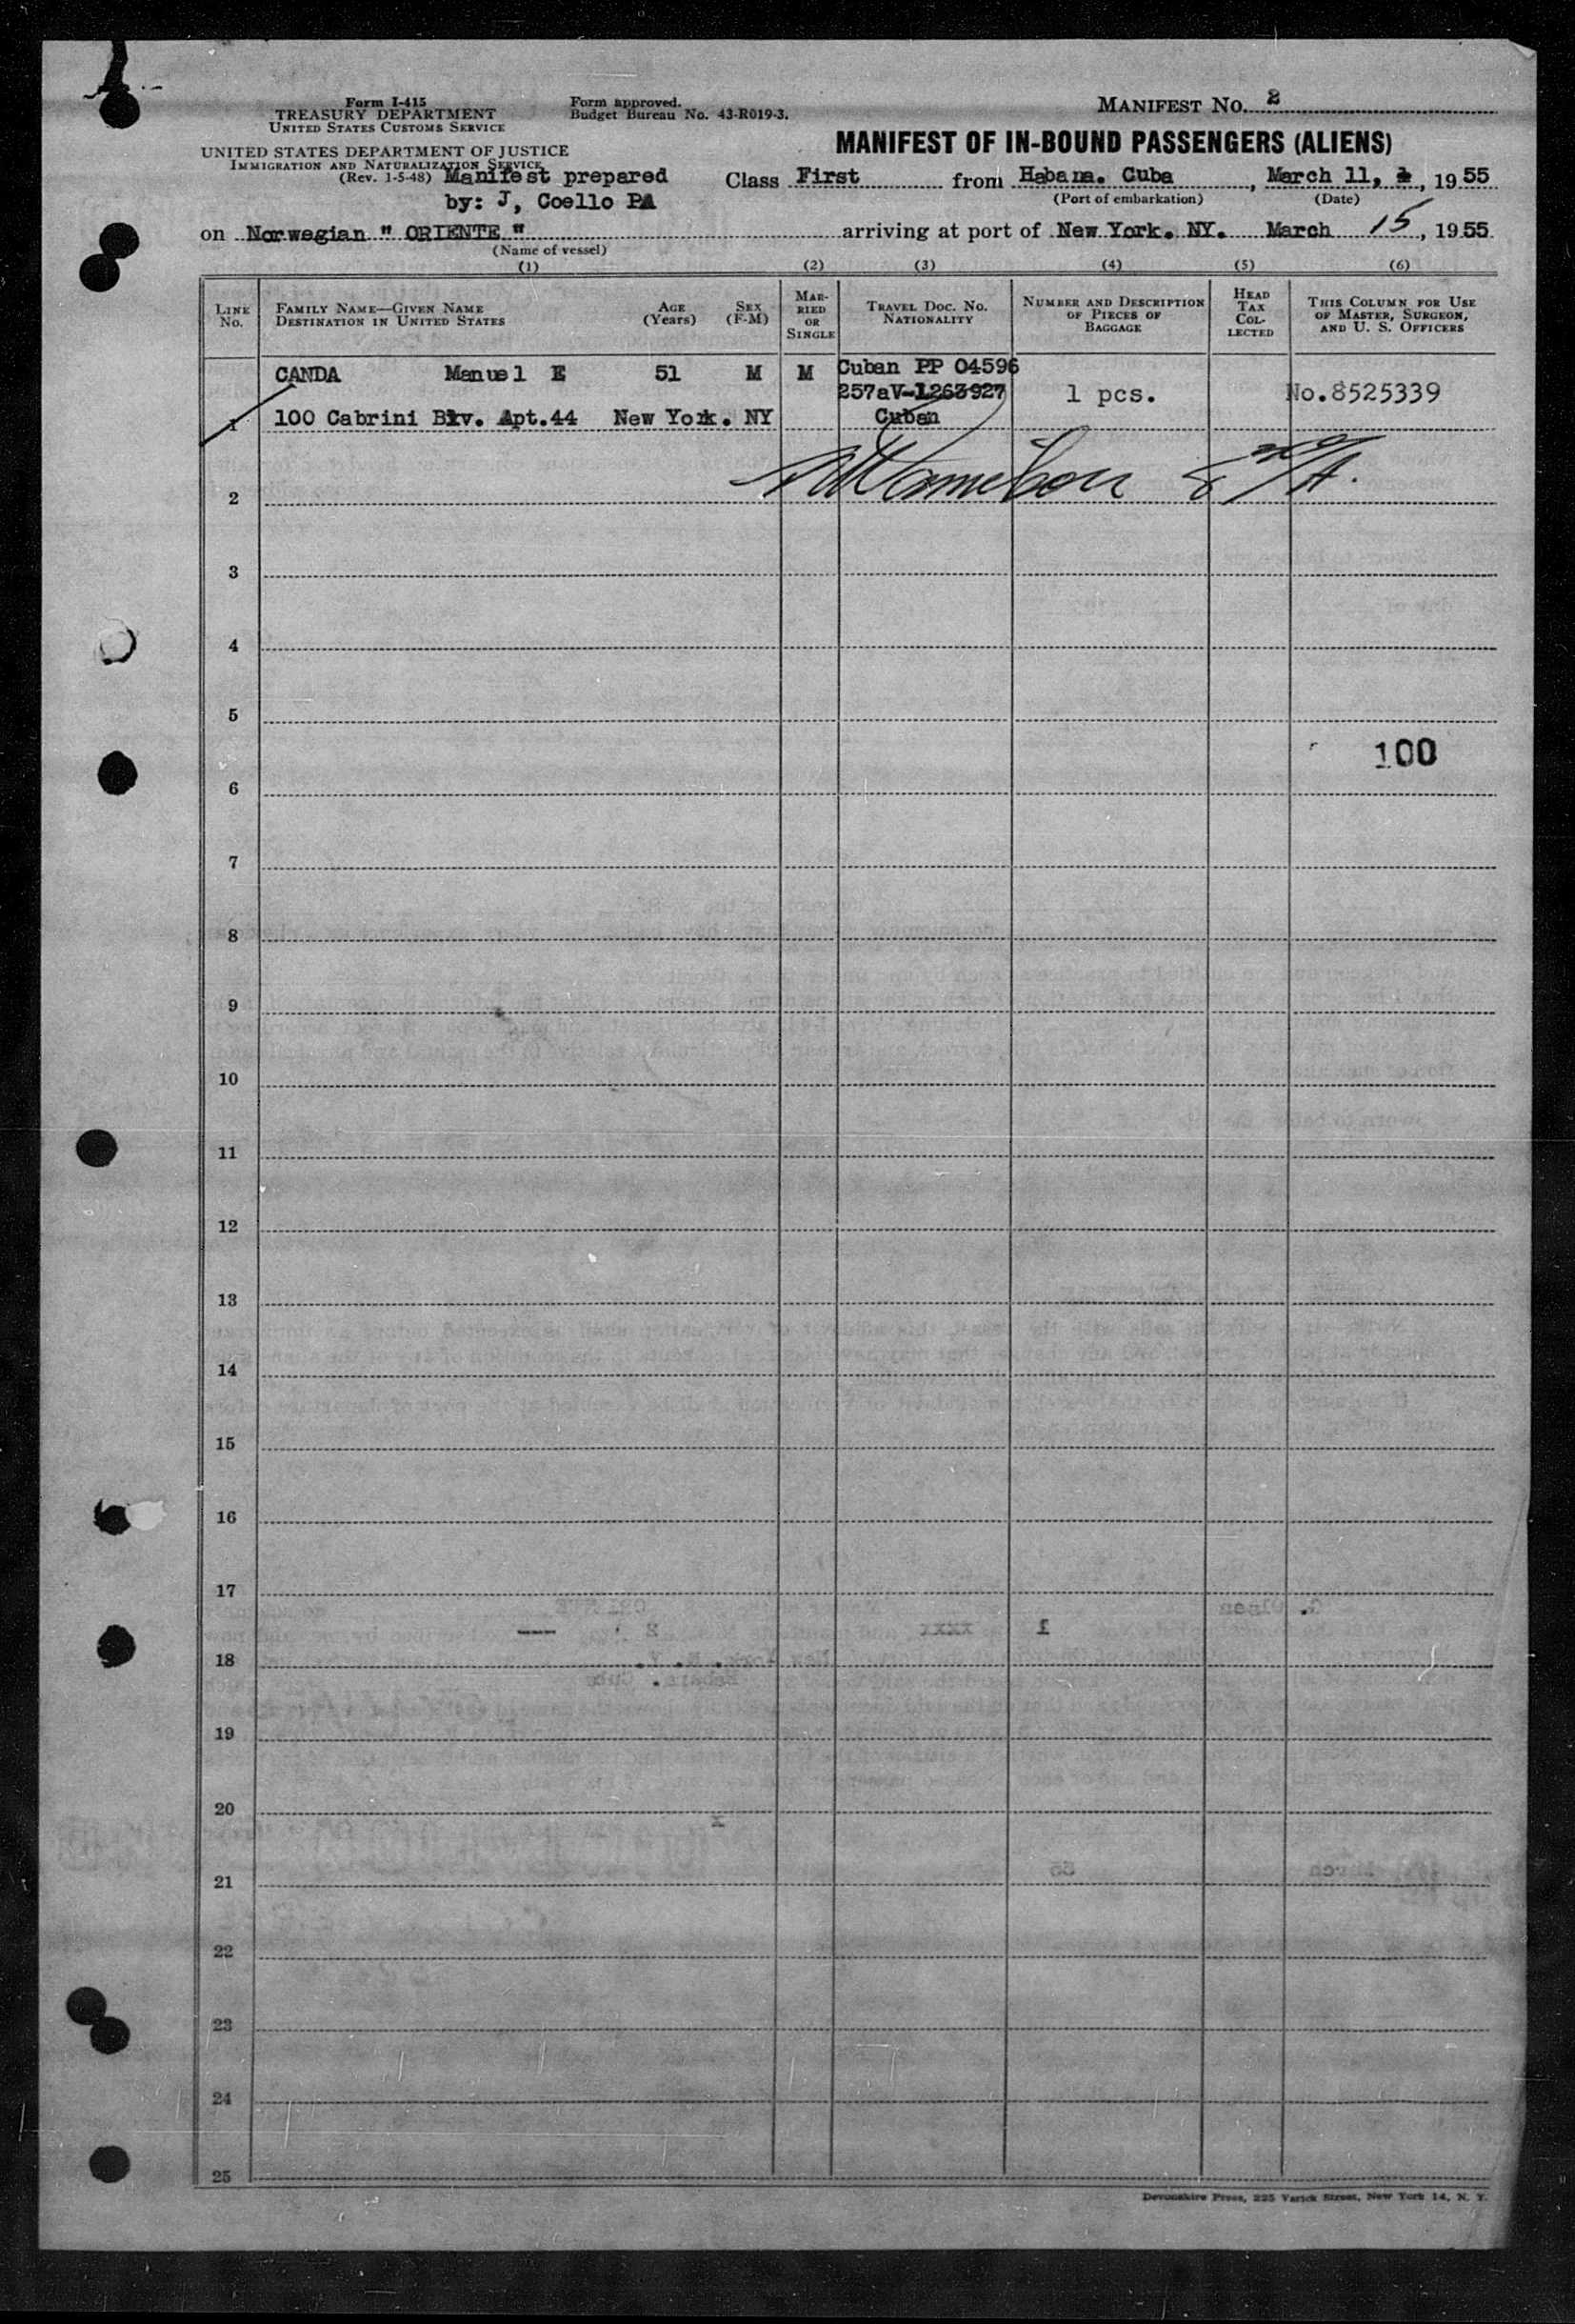 Form I-415
TREASURY DEPARTMENT
UNITED STATES CUSTOMS SERVICE
UNITED STATES DEPARTMENT OF JUSTICE
IMMIGRATION AND NATURALIZATION SERVICE
(Rev. 1-5-48) Manifest prepared
by: J, Coello PA
Form approved.
Budget Bureau No. 43-R019-3.
MANIFEST NO. 2
MANIFEST OF IN-BOUND PASSENGERS (ALIENS)
Class First from Habana. Cuba, March 11, 1955
(Port of embarkation) (Date)
on Norwegian " ORIENTE " arriving at port of New York. NY. March 15, 1955
(Name of vessel)
(1) (2) (3) (4) (5) (6)
LINE No.
FAMILY NAME—GIVEN NAME
DESTINATION IN UNITED STATES
AGE (Years)
SEX (F-M)
MARRIED OR SINGLE
TRAVEL DOC. NO.
NATIONALITY
NUMBER AND DESCRIPTION OF PIECES OF BAGGAGE
HEAD TAX COLLECTED
THIS COLUMN FOR USE OF MASTER, SURGEON, AND U. S. OFFICERS
CANDA Manuel E 51 M M Cuban PP 04596
257aV-1263927 1 pcs. No.8525339
1 100 Cabrini Blv. Apt.44 New York. NY Cuban
2
3
4
5
100
6
7
8
9
10
11
12
13
14
15
16
17
18
19
20
21
22
23
24
25
Devonshire Press, 225 Varick Street, New York 14, N. Y.